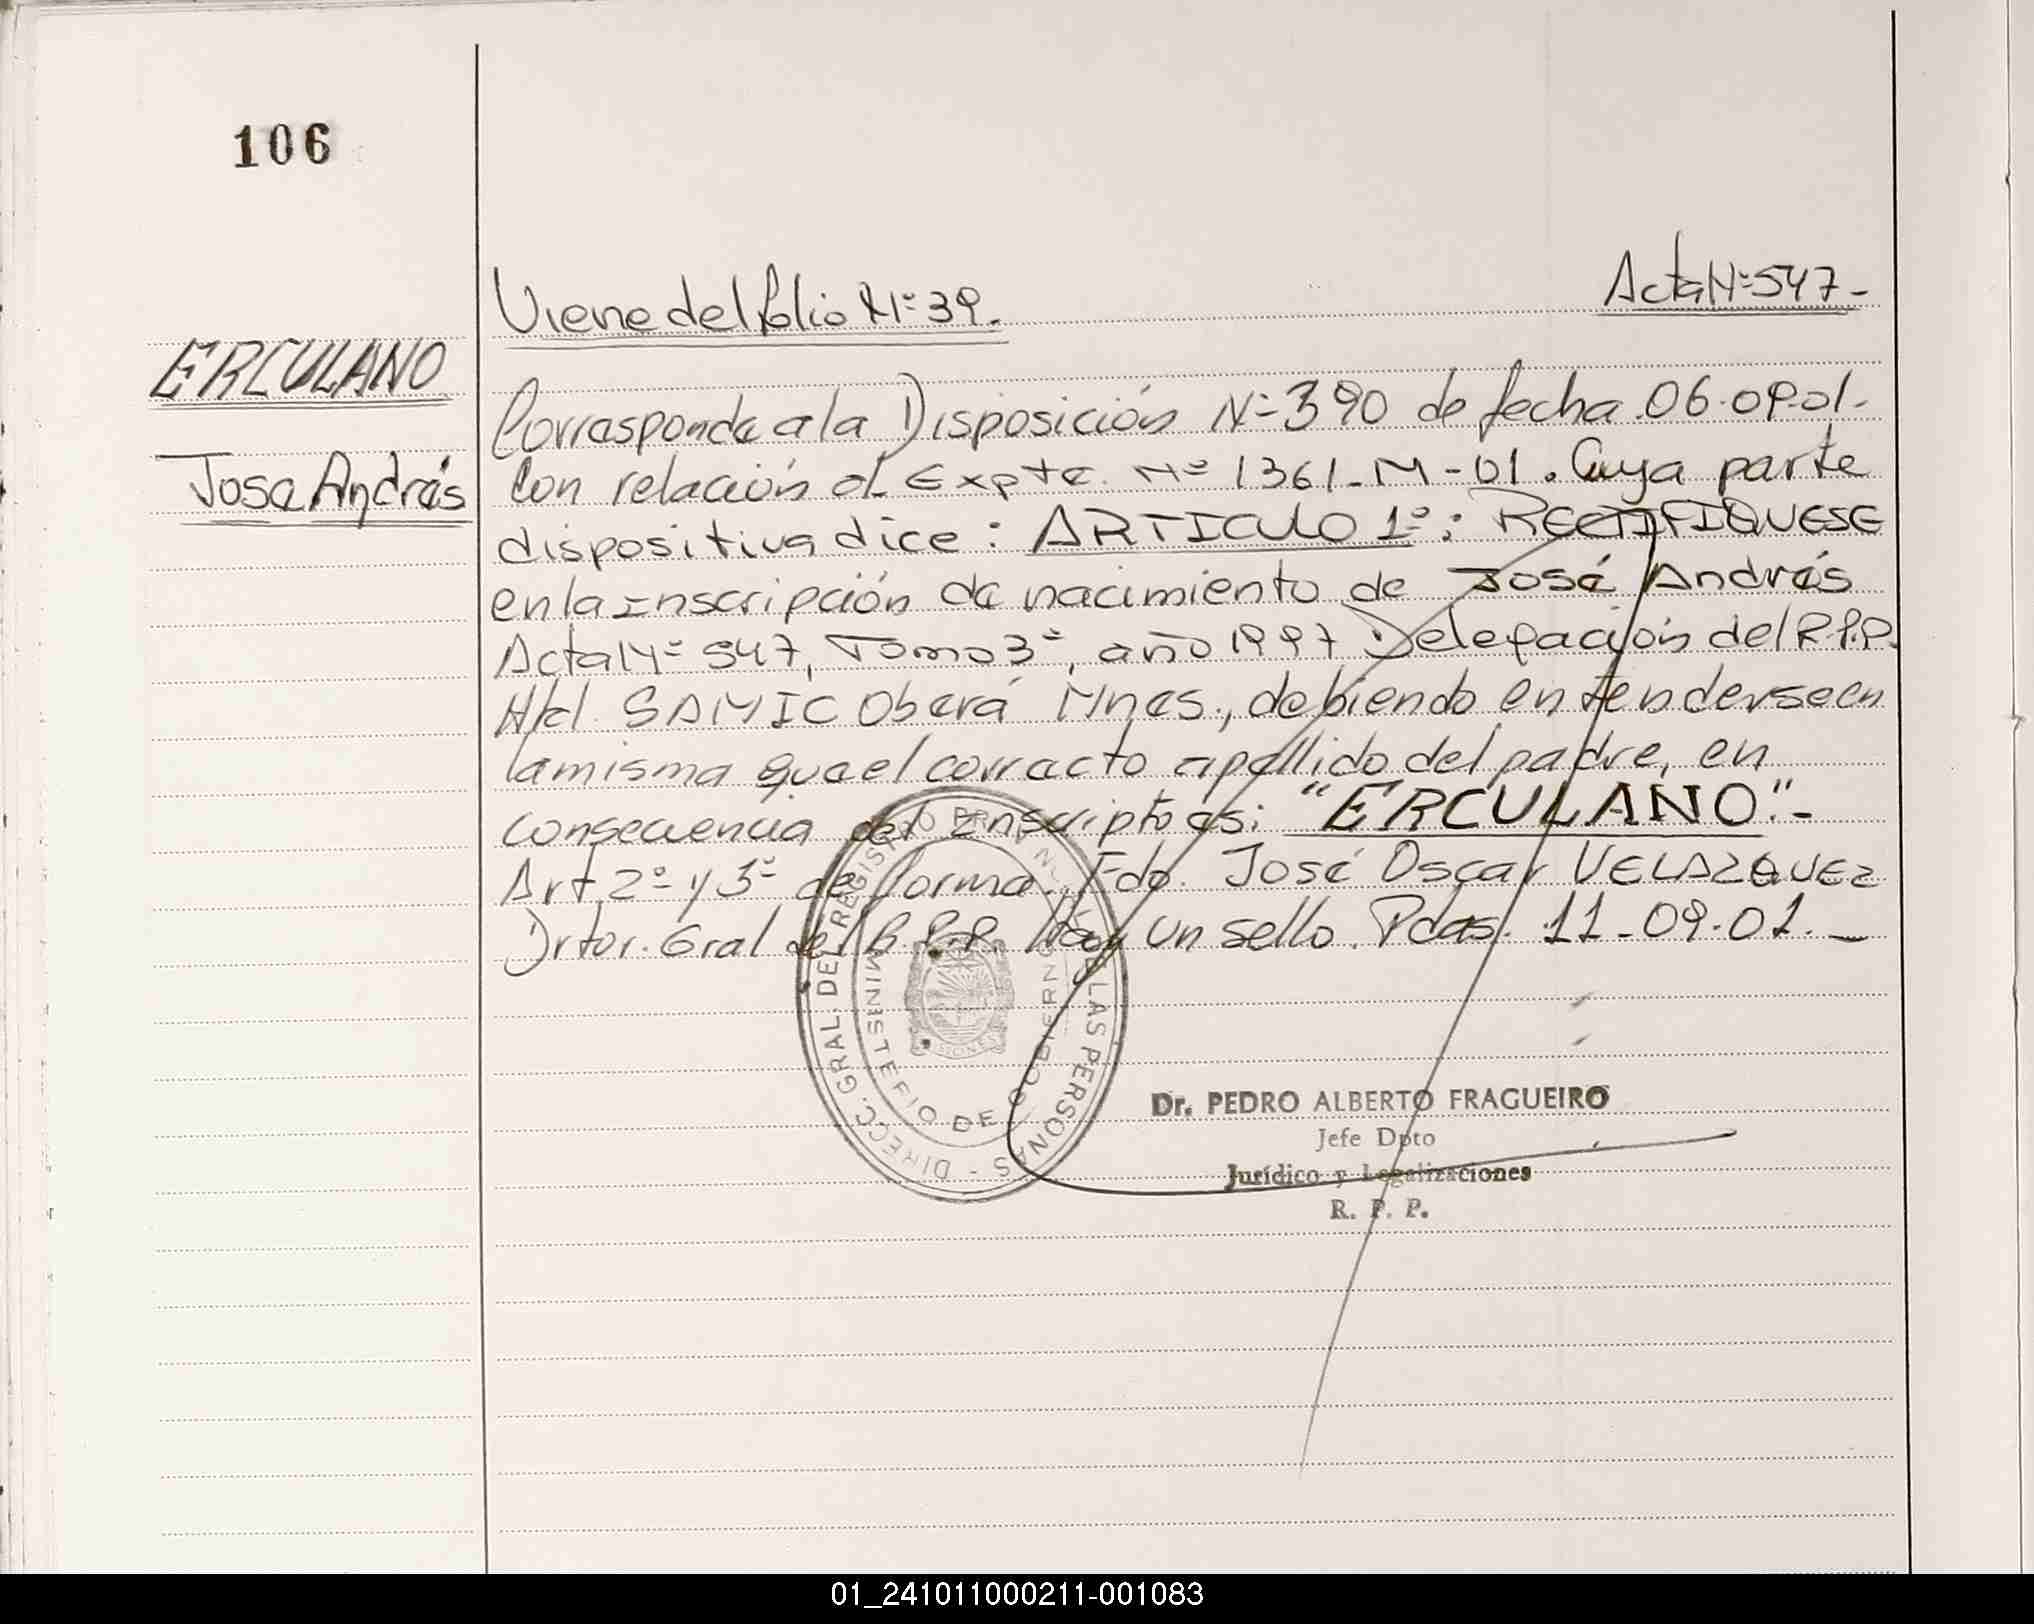 106
Viene del folio N° 39.
Acta N° 547-
ERCULANO
José Andrés
Corresponde a la Disposición N° 390 de fecha 06.09.01.
Con relación al Expte. N° 1361-M-01. Cuya parte
dispositiva dice: ARTICULO 1°: RECTIFIQUESE
en la inscripción de nacimiento de José Andrés
Acta N° 547, Tomo 3°, año 1997 Delegación del R.P.P.
Htal. SAMIC Oberá Mnes., debiendo entenderse en
la misma que el correcto apellido del padre, en
consecuencia del inscripto es: "ERCULANO".-
Art. 2° y 3° de forma. Fdo. José Oscar VELAZQUEZ
Drtor. Gral del R.P.P. Hay un sello. Pdas. 11-09-01.-
DIRECC. GRAL. DEL REGISTRO PROV. DE LAS PERSONAS -
MINISTERIO DE GOBIERNO
MISIONES
Dr. PEDRO ALBERTO FRAGUEIRO
Jefe Dpto
Jurídico y Legalizaciones
R. P. P.
01_241011000211-001083